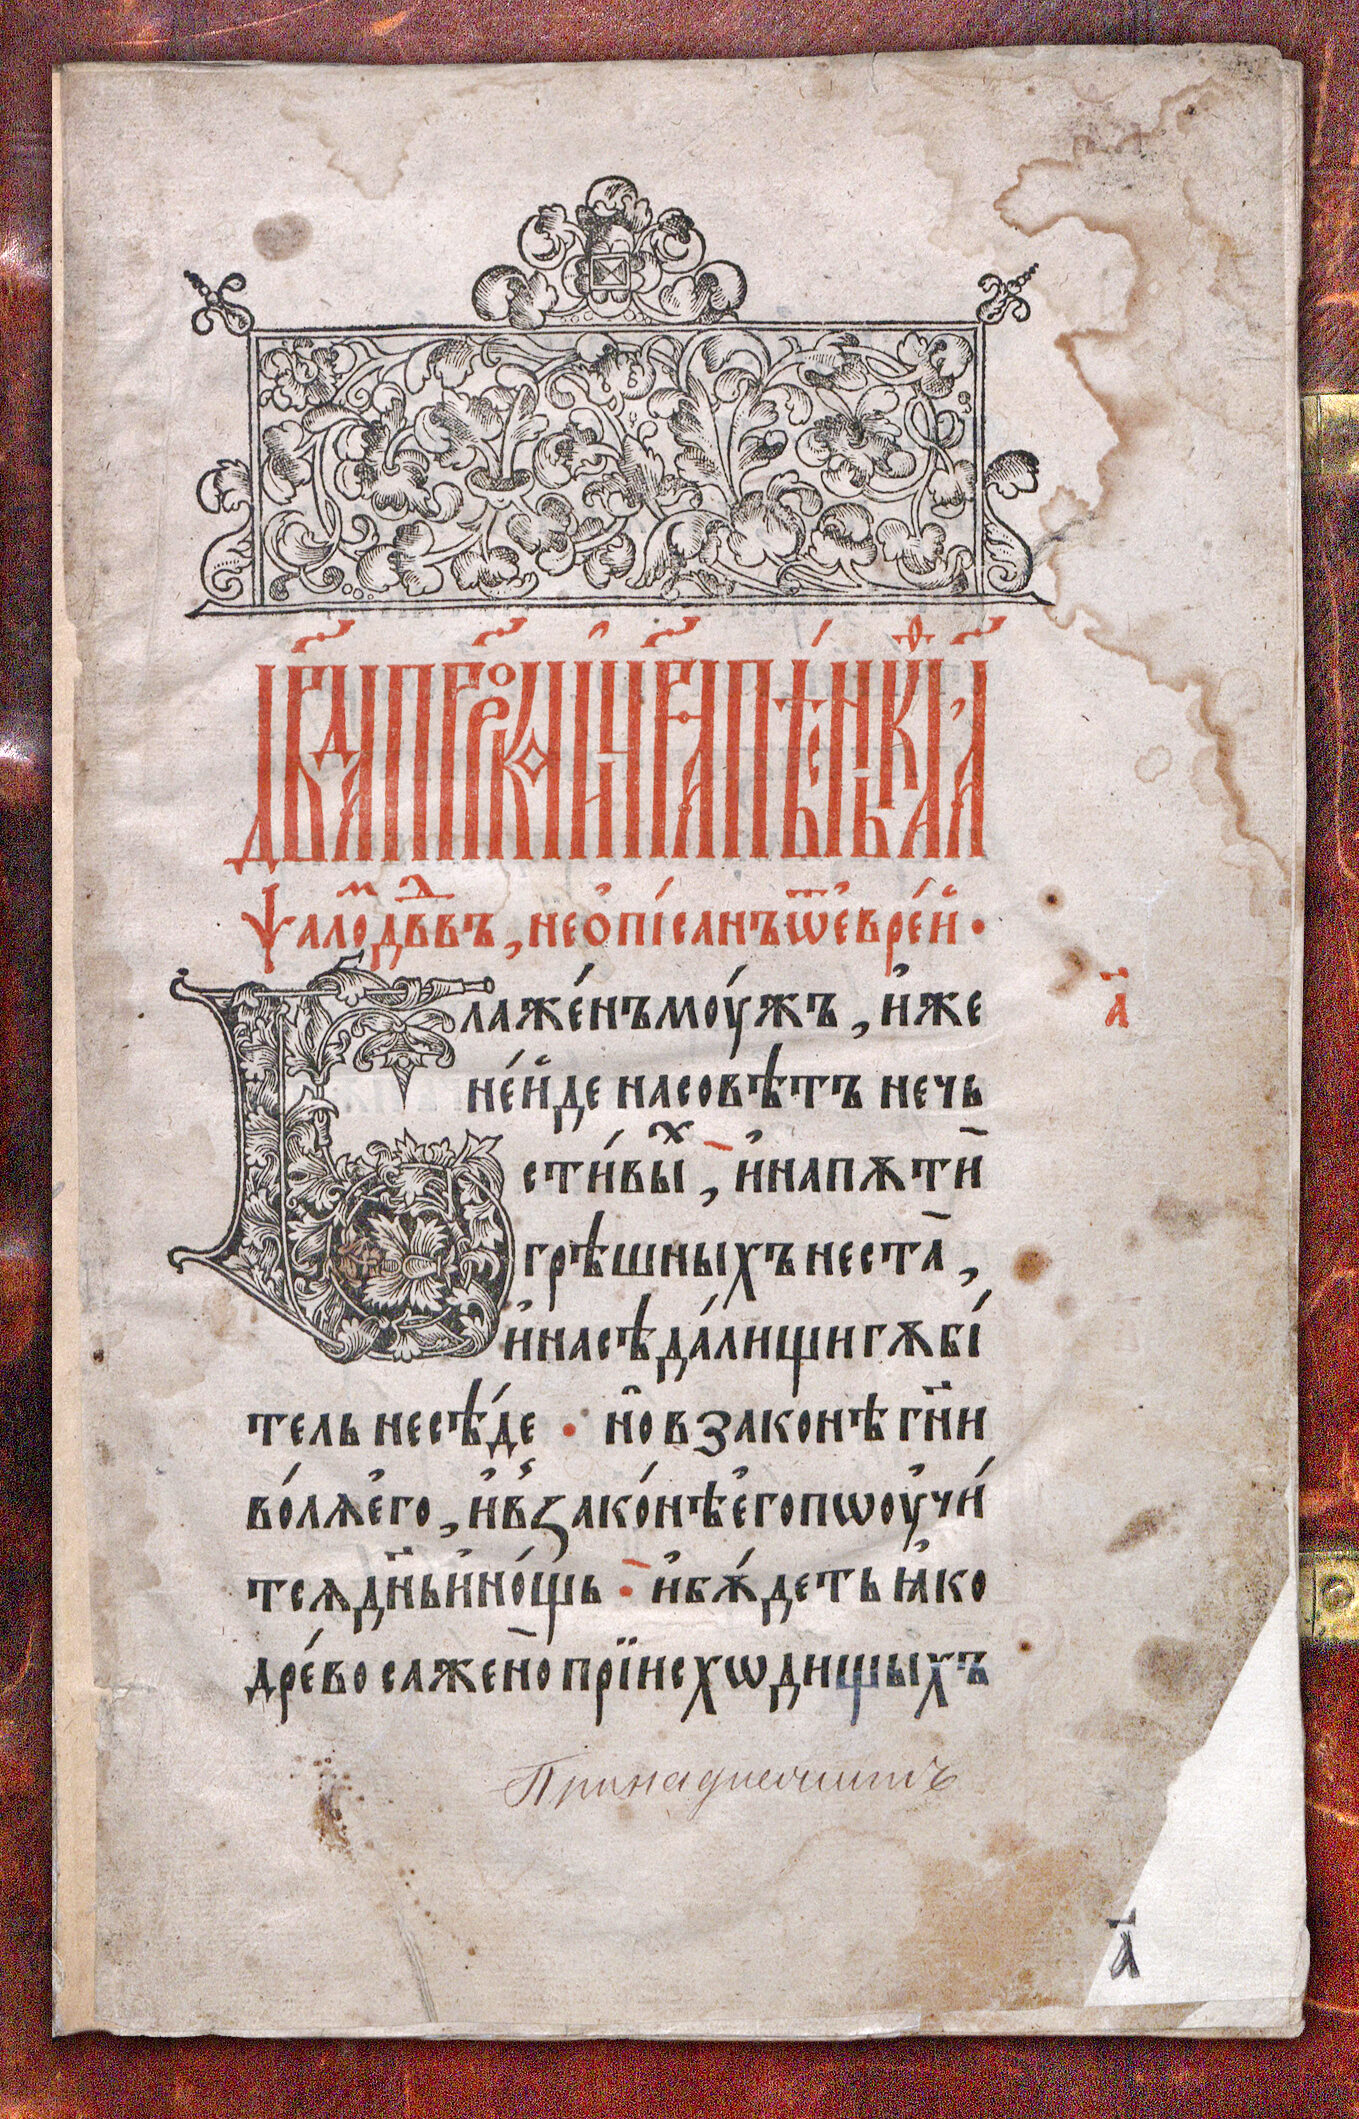 Дв҃да прⷪ҇рка и҆ цр҃ѧ пѣ́снь
Ѱалоⷨ дв҃двъ, не ѻ҆пі́санъ ѿ є҆вре́й •
Блаже́нъ моу́жъ, и҆же
а҃
не́ йде на совѣтъ нечь
сти́выⷯ, и҆ на пѫти
грѣшныхъ не ста,
и҆ на сѣда́лищи гѫбі́
тель не сѣ́де • но в законѣ гн҃и
во́лѧ є҆го, и҆ в̾ зако́нѣ є҆го поѡу҆чи́
тсѧ дн҃ь и҆ но́щь • и҆ бѫ́деть ꙗ҆ко
дре́во сажено при и҆схѡдищыхъ
Принадлежитъ
а҃